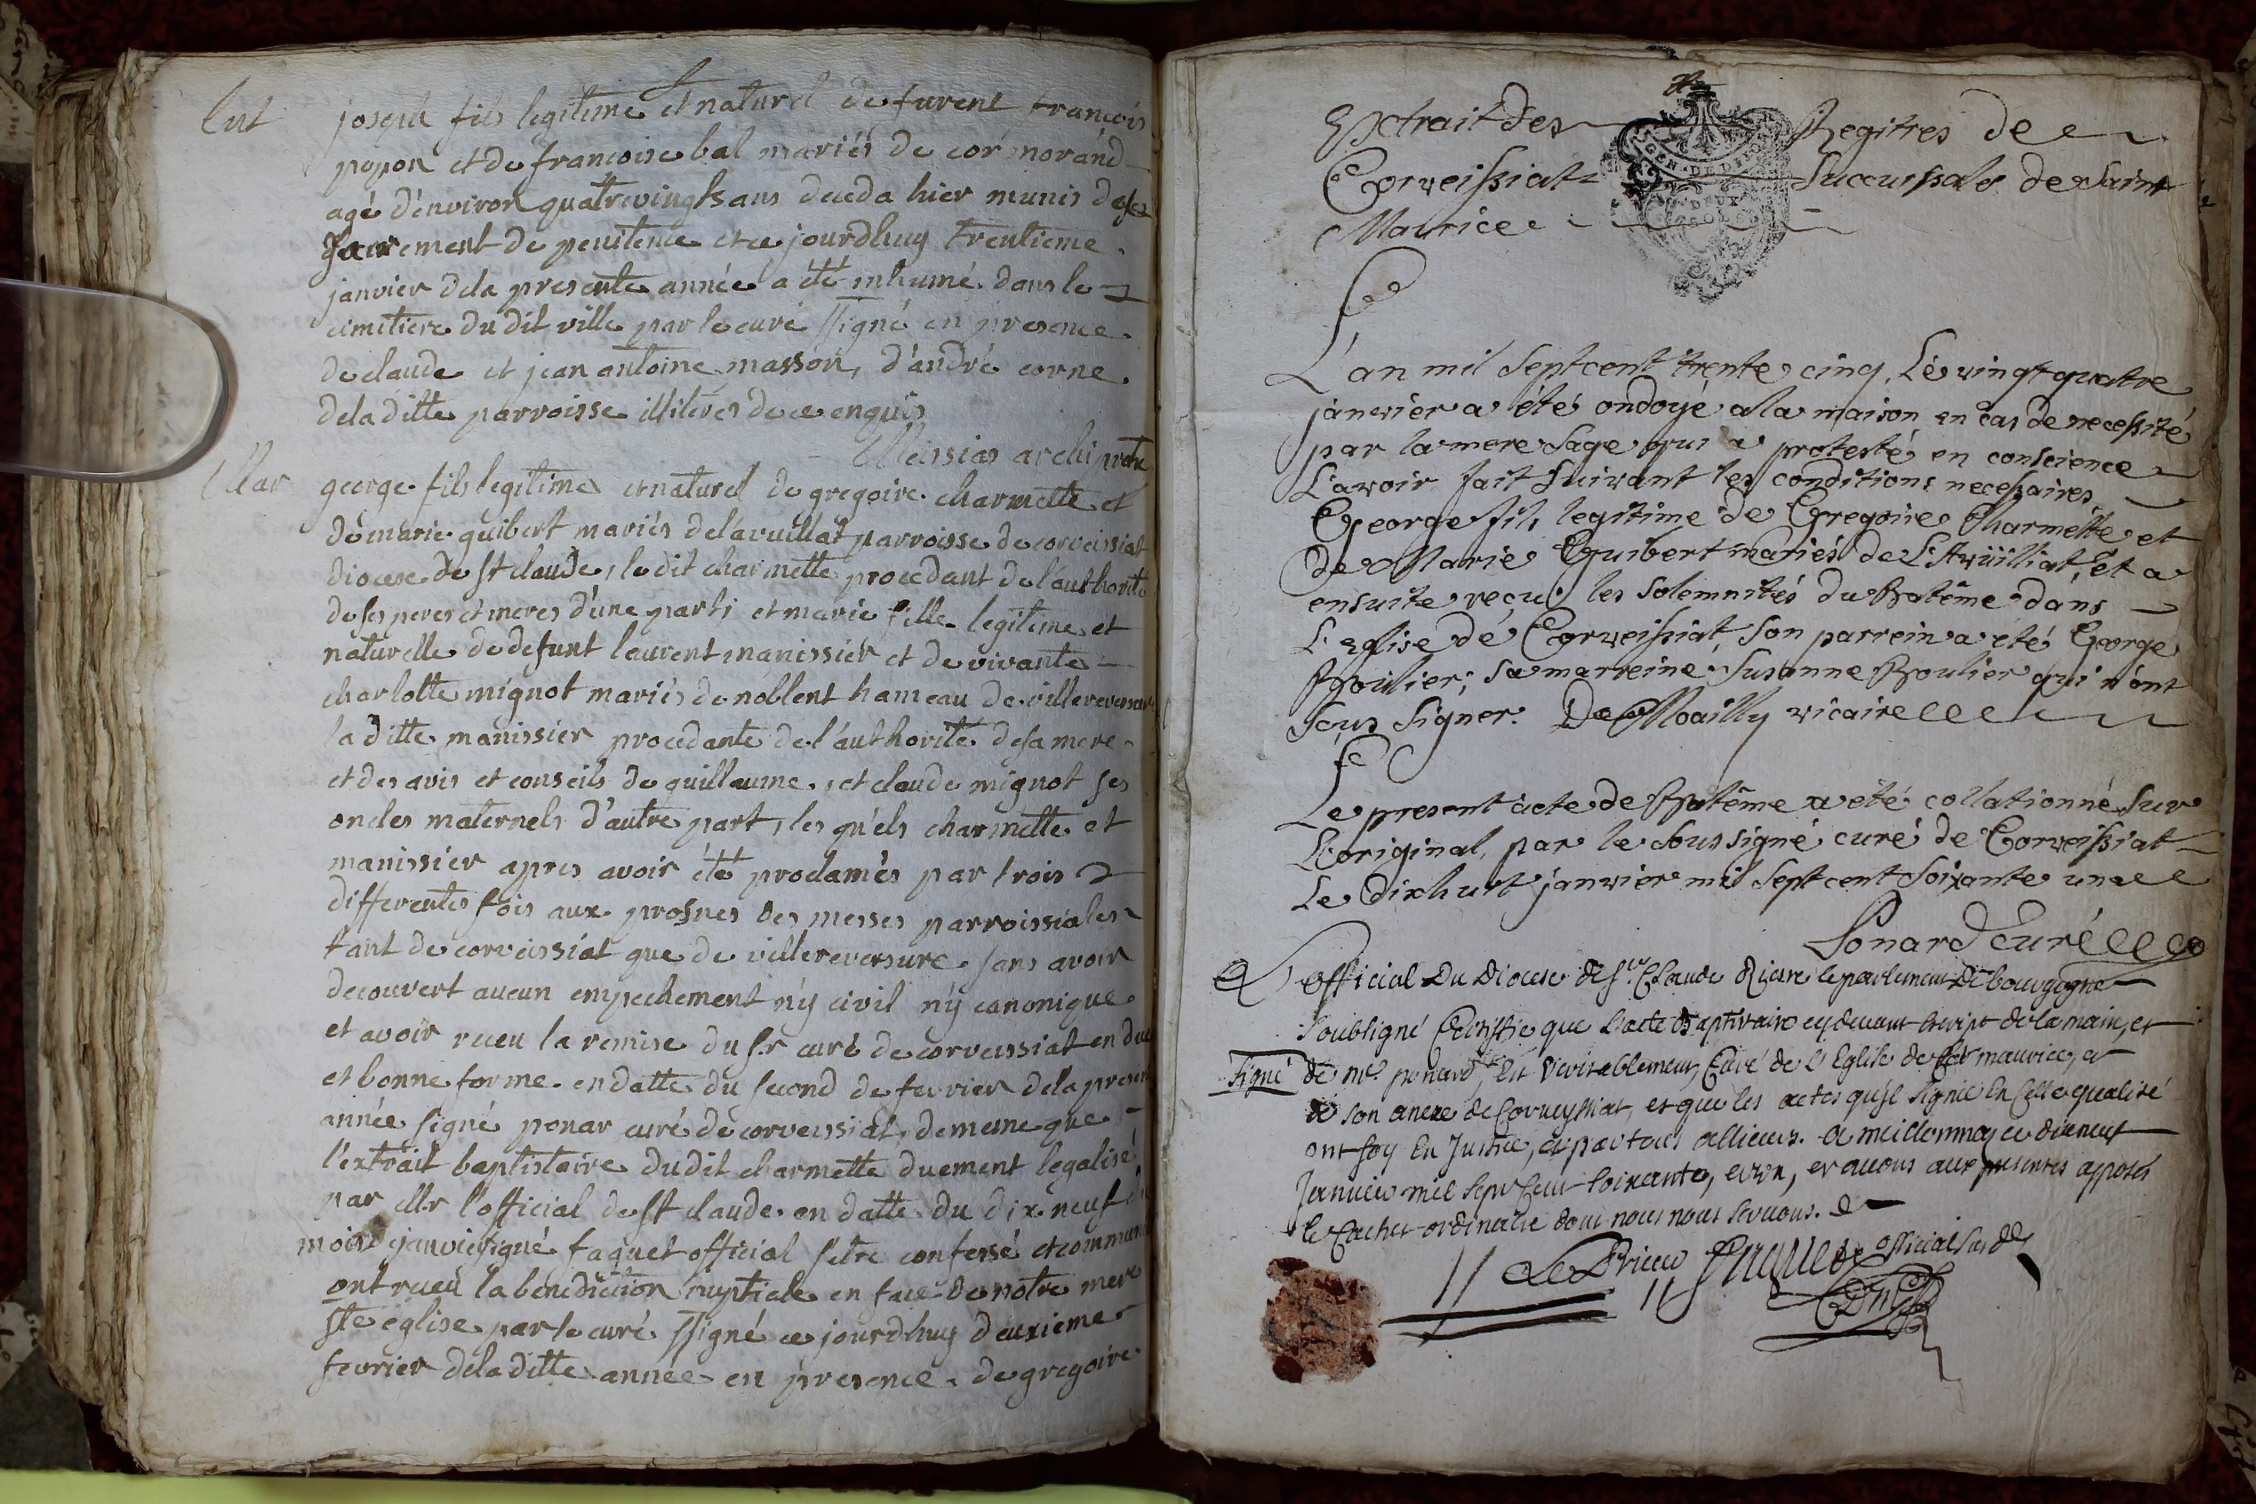 Ent
joseph fils legitime et naturel de furent francois
popon et de francoise bal mariés de cormorand
agé d'environ quatrevingts ans deceda hier munis de ses
sacrement de penitence et ce jourdhuy trentieme
janvier dela presente année a été inhumé dans le
cimitiere dudit ville par le curé ssigné en presence
de claude et jean antoine masson, d'andré corne
dela ditte parroisse illiteres de ce enquis
Messias archipretre
Mar
george fils legitime et naturel de gregoire charmette et
de marie guibert mariés delavuillat parroisse de corveissiat
diocese de st claude, le dit charmette procedant de l'authorité
de ses peres et meres d'une parti et marie fille legitime et
naturelle de defunt laurent manissier et de vivante
charlotte mignot mariés de noblent hameau de villereversure
la ditte manissier procedante de l'authorité de sa mere
et des avis et conseils de guillaume, et claude mignot ses
oncles maternels d'autre part, les qu'els charmette et
manissier apres avoir été proclamés par trois
differentes fois aux prosnes des messes parroissiales
tant de corveissiat que de villereversure sans avoir
decouvert aucun empechement n'y civil n'y canonique
et avoir receu la remise du sr curé de corveissiat en due
et bonne forme en datte du second de fevrier dela presente
année signé ponar curé de corveissiat, de meme que
l'extrait baptistaire dudit charmette duement legalisé
par Mr l'official de st claude en datte du dix neuf du
mois janvier signé faquet official setre confessé et communié
ont receu la benediction nuptiale en face de notre mere
ste eglise par le curé ssigné ce jourdhuy deuxieme
fevrier dela ditte année en presence de gregoire
Extrait des Regitres de
GEN. DE DIJON
DEUX SOLS
Corveissiat Succursale de Saint
Maurice
L'an mil Sept cent trente cinq, Le vingt quatre
janvier a été ondoyé a la maison en cas de necessité
par la mere Sage qui a protesté en conscience
L'avoir fait suivant les conditions necessaires
George fils legitime de Gregoire Charmette et
de Marie Guibert mariés de L'Avuilliat, et a
ensuite reçu les Solemnités du Batême dans
L'Eglise de Corveissiat, Son parrein a été George
Boulier; Sa marreine Susanne Boulier qui n'ont
sçus Signer. De Moailly vicaire
Le present acte de Batême a été collationné Sur
L'original, par le Soussigné curé de Corveissiat
Le Dixhuit janvier mil Sept cent Soixante un
Ponard Curé
L'official Du Diocese de St Claude Riere le parlement De bourgogne
Soubsigné Certiffie que L'acte Baptistaire cy devant Escript de la main, et
Signé de Mr. ponard, Est Veritablement, Curé de L'Eglise de St maurice, et
de son anexe de Corveyssiat, et que les actes qu'il signe En Cette qualité
ont foy En Justice, et partout allieurs. a meillonnay ce dixneuf
Janvier mil Sept Cent Soixante, et un, et avons aux presentes apposés
le Cachet ordinaire dont nous nous servons.
Faquet official